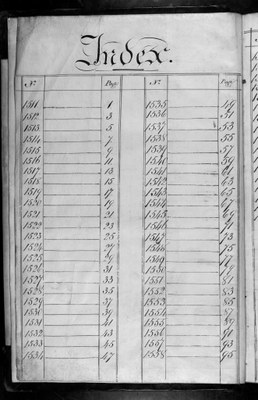 Index.
No. Page No. Page
1511 1 1535 49
1512 3 1536 51
1513 5 1537 53
1514 7 1538 55
1515 9 1539 57
1516 11 1540 59
1517 13 1541 61
1518 15 1542 63
1519 17 1543 65
1520 19 1544 67
1521 21 1545 69
1522 23 1546 71
1523 25 1547 73
1524 27 1548 75
1525 29 1549 77
1526 31 1550 79
1527 33 1551 81
1528 35 1552 83
1529 37 1553 85
1530 39 1554 87
1531 41 1555 89
1532 43 1556 91
1533 45 1557 93
1534 47 1558 95